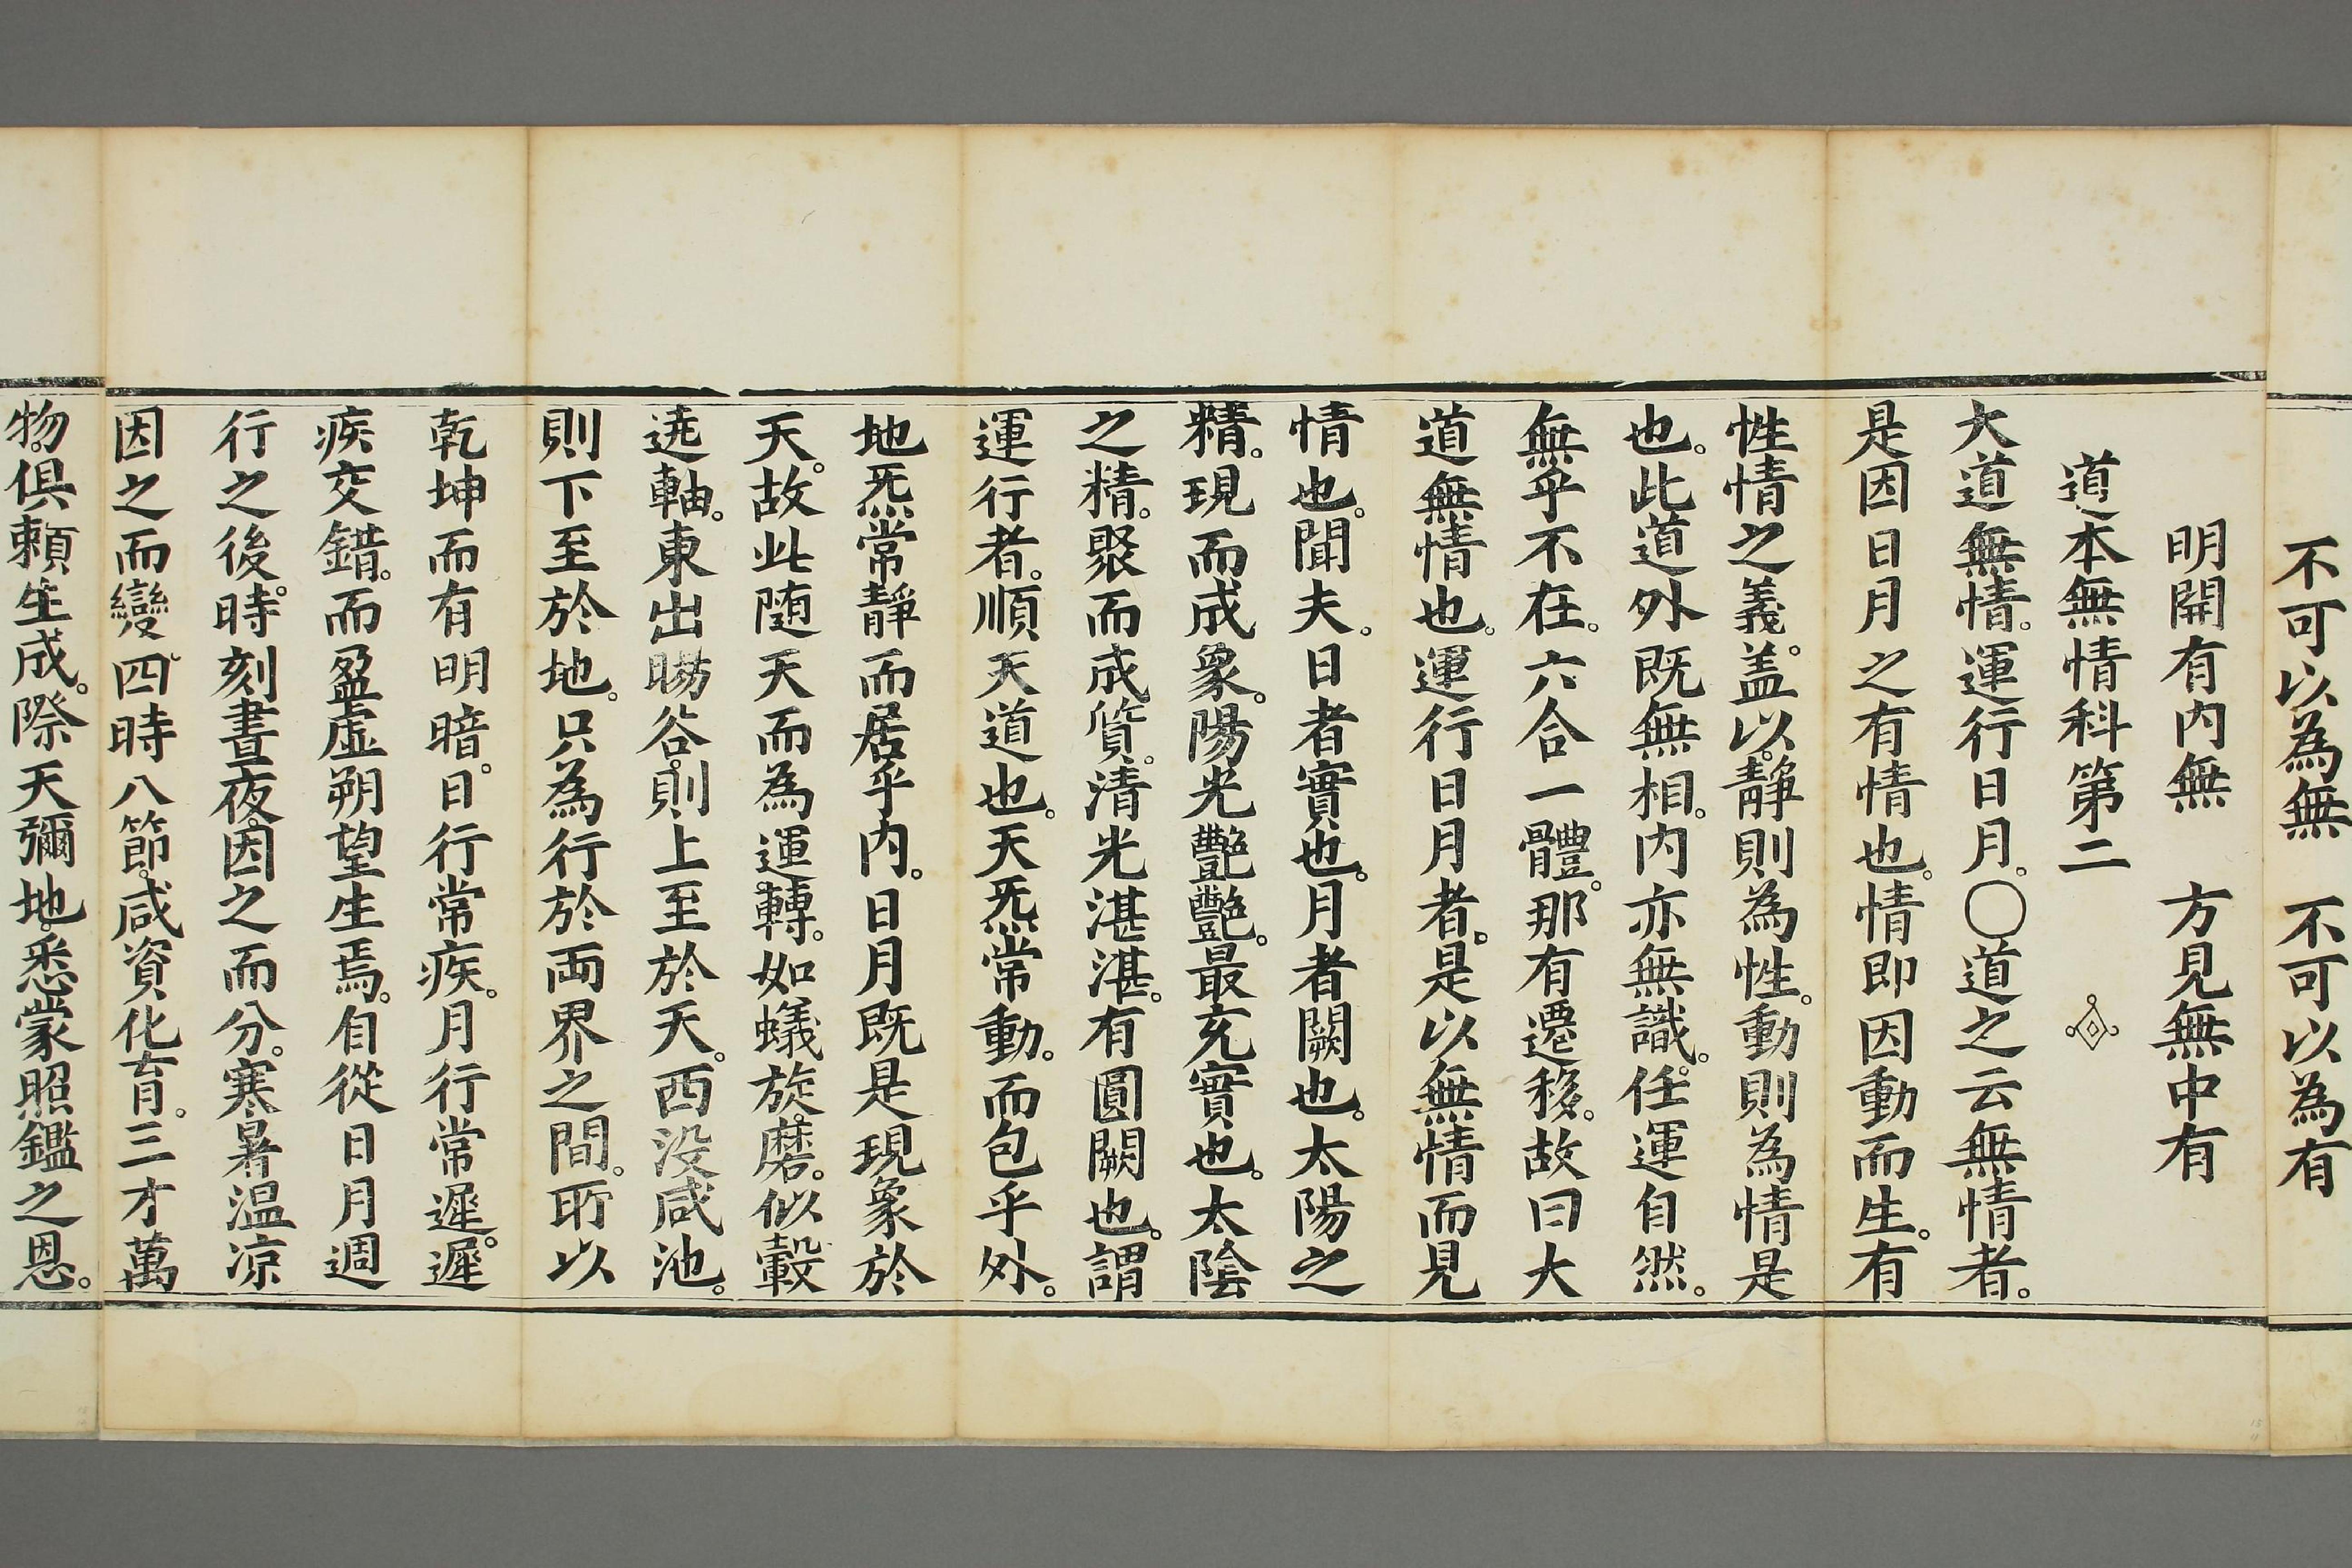 不可以為無　不可以為有
明開有内無　方見無中有
道本無情科第二
大道無情。運行日月。〇道之云無情者。
是因日月之有情也。情即因動而生。有
性情之義。盖以靜則為性。動則為情是
也。此道外既無相。内亦無識。任運自然。
無乎不在。六合一體。那有遷移。故曰大
道無情也。運行日月者。是以無情而見
情也。聞夫。日者實也。月者闕也。太陽之
精。現而成象。陽光艷艷。最充實也。太陰
之精。聚而成質。清光湛湛。有圓闕也。謂
運行者。順天道也。天旡常動。而包乎外。
地旡常靜而居乎内。日月既是現象於
天。故此随天而為運轉。如蟻旋磨。似轂
遶軸。東出暘谷。則上至於天。西没咸池。
則下至於地。只為行於両界之間。所以
乾坤而有明暗。日行常疾。月行常遲。遲
疾交錯。而盈虛朔望生焉。自從日月週
行之後。時刻晝夜。因之而分。寒暑温凉
因之而變。四時八節。咸資化育。三才萬
物。俱頼生成。際天彌地。悉蒙照鑑之恩。